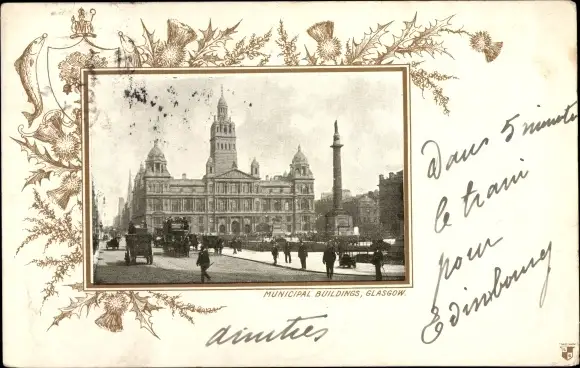 MUNICIPAL BUILDINGS, GLASGOW.
Dans 5 minutes
le train
pour
Edimbourg
amitiés